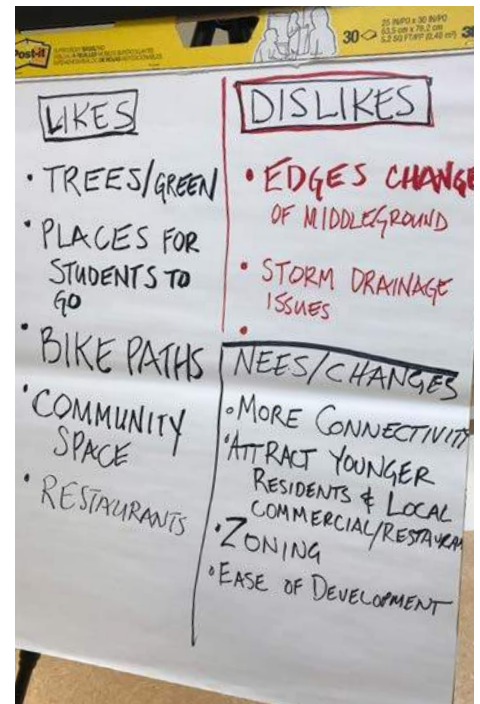 Post-it
30
25 IN/PO x 30 IN/PO
63,5 cm x 76,2 cm
5.2 SQ FT/PI² (0,48 m²)
LIKES
• TREES/GREEN
• PLACES FOR
STUDENTS TO
GO
• BIKE PATHS
• COMMUNITY
SPACE
• RESTAURANTS
DISLIKES
• EDGES CHANGE
OF MIDDLEGROUND
• STORM DRAINAGE
ISSUES
•
NEES/CHANGES
• MORE CONNECTIVITY
• ATTRACT YOUNGER
RESIDENTS & LOCAL
COMMERCIAL/RESTAURAN
• ZONING
• EASE OF DEVELOPMENT